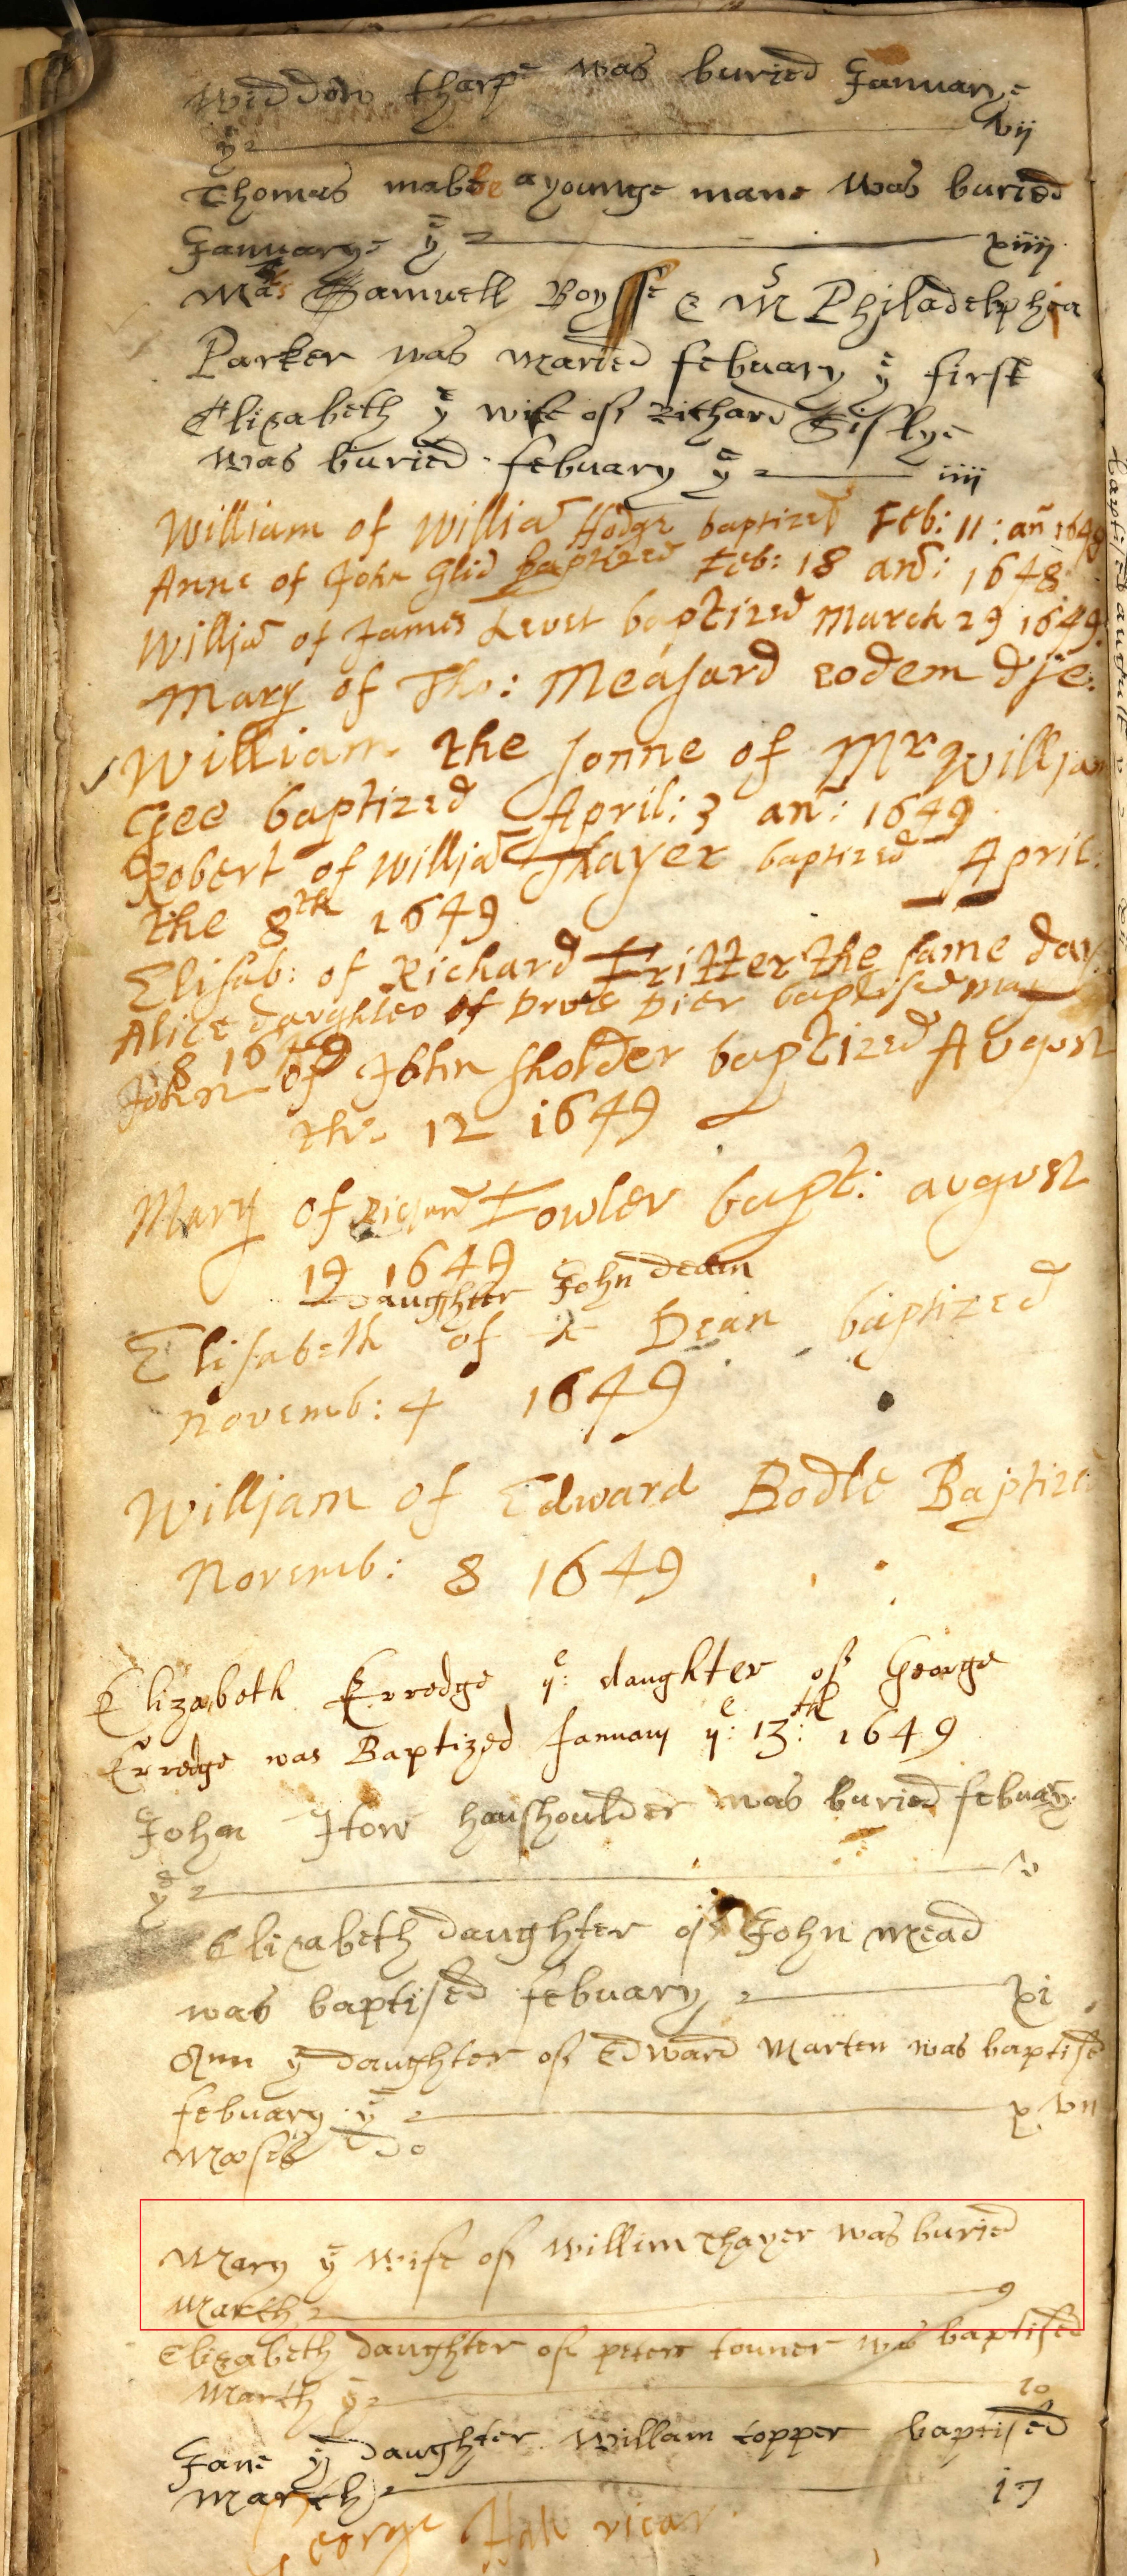 Widdow tharpe was buried Januarye
yᵉ vij
Thomas mabbe a younge mane was buried
Januarye yᵉ xiiij
Samuell Boysse & Mˢ Philadelphia
Parker was maried febuary yᵉ first
Elizabeth yᵉ wife of Richard Sislye
was buried febuary yᵉ iiij
William of Willia Hodge baptized Feb: 11: an 1649
Anne of John Glid baptized Feb: 18 and: 1648
Willia of James Levet baptized March 29 1649.
Mary of Tho: Measard eodem die:
William the sonne of Mʳ Willjam
Gee baptized April: 3 an: 1649
Robert of Willja Thayer baptized April:
the 8th 1649
Elisab: of Richard Fritter the same day
Alice daughter of Drue Dier baptised may
8 1649
John of John Sholder baptized August
the 12 1649
Mary of Richard Fowler bapt: august
19 1649
Daughter John dean
Elisabeth of Dean baptized
Novemb: 4 1649
Willjam of Edward Bodle Baptized
Novemb: 8 1649
Elizabeth Erredge yᵉ: daughter of George
Erredge was Baptized January yᵉ: 13:th 1649
John How houshoulder was buried febuary
yᵉ v
Elizabeth daughter of John mead
was baptised febuary xi
Ann yᵉ daughter of Edward Marten was baptised
febuary yᵉ xvii
Moses
Mary yᵉ Wife of Willim Thayer was buried
March 9
Elizabeth daughter of peter touner was baptised
March yᵉ 10
Jane yᵉ daughter Willam topper baptised
march 17
George Hall vicar